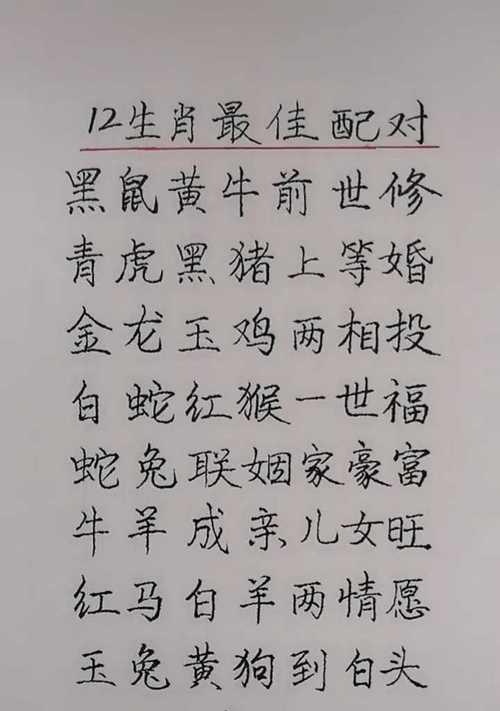 12生肖最佳配对
黑鼠黄牛前世修
青虎黑猪上等婚
金龙玉鸡两相投
白蛇红猴一世福
蛇兔联姻家豪富
牛羊成亲儿女旺
红马白羊两情愿
玉兔黄狗到白头